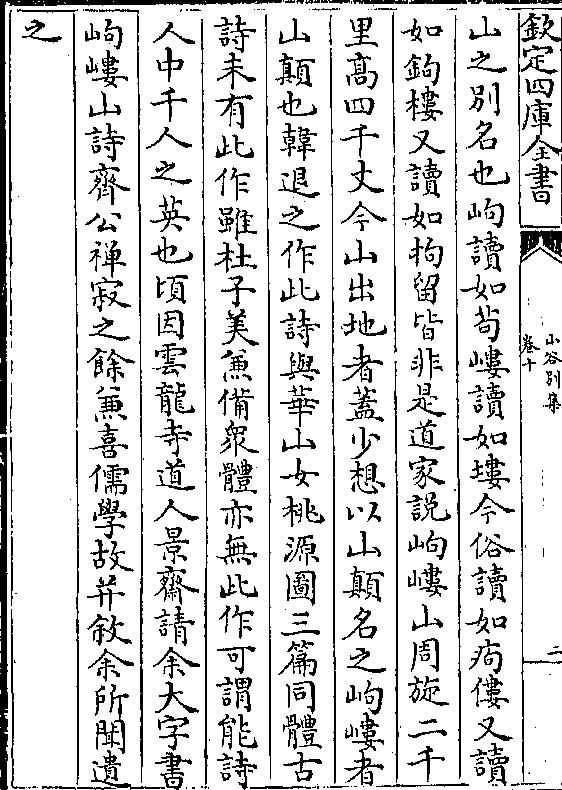 欽定四庫全書
山谷別集
卷十
二
山之別名也岣讀如苟嶁讀如塿今俗讀如痀僂又讀
如鉤樓又讀如拘留皆非是道家説岣嶁山周旋二千
里髙四千丈今山出地者蓋少想以山顛名之岣嶁者
山顛也韓退之作此詩與華山女桃源圖三篇同體古
詩未有此作雖杜子美兼備衆體亦無此作可謂能詩
人中千人之英也頃因雲龍寺道人景齋請余大字書
岣嶁山詩齊公禅寂之餘兼喜儒學故并敘余所聞遺
之